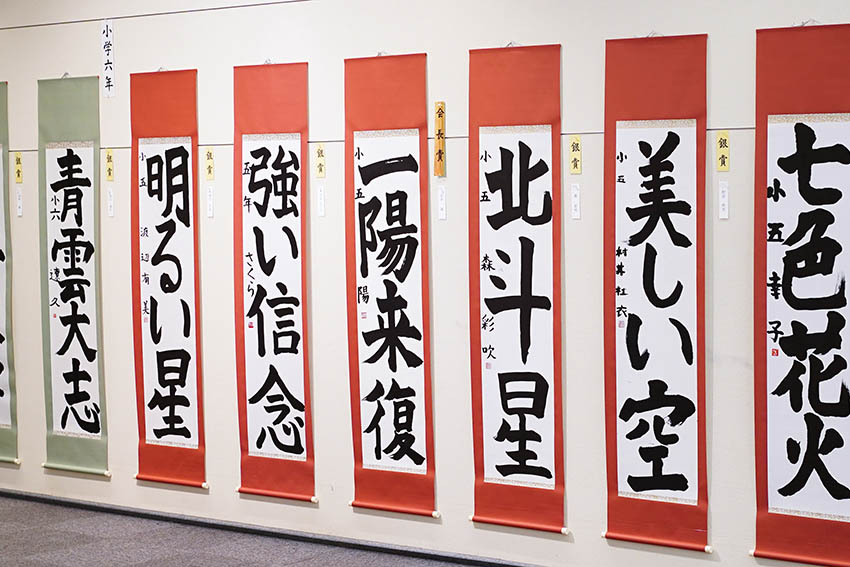 小学六年
銀賞
青雲大志
小六
達久
銀賞
明るい星
小五
渡辺有美
銀賞
強い信念
五年
さくら
銀賞
一陽来復
小五
陽
会長賞
北斗星
小五
森彩吹
銀賞
美しい空
小五
紅衣
銀賞
七色花火
小五
幸子